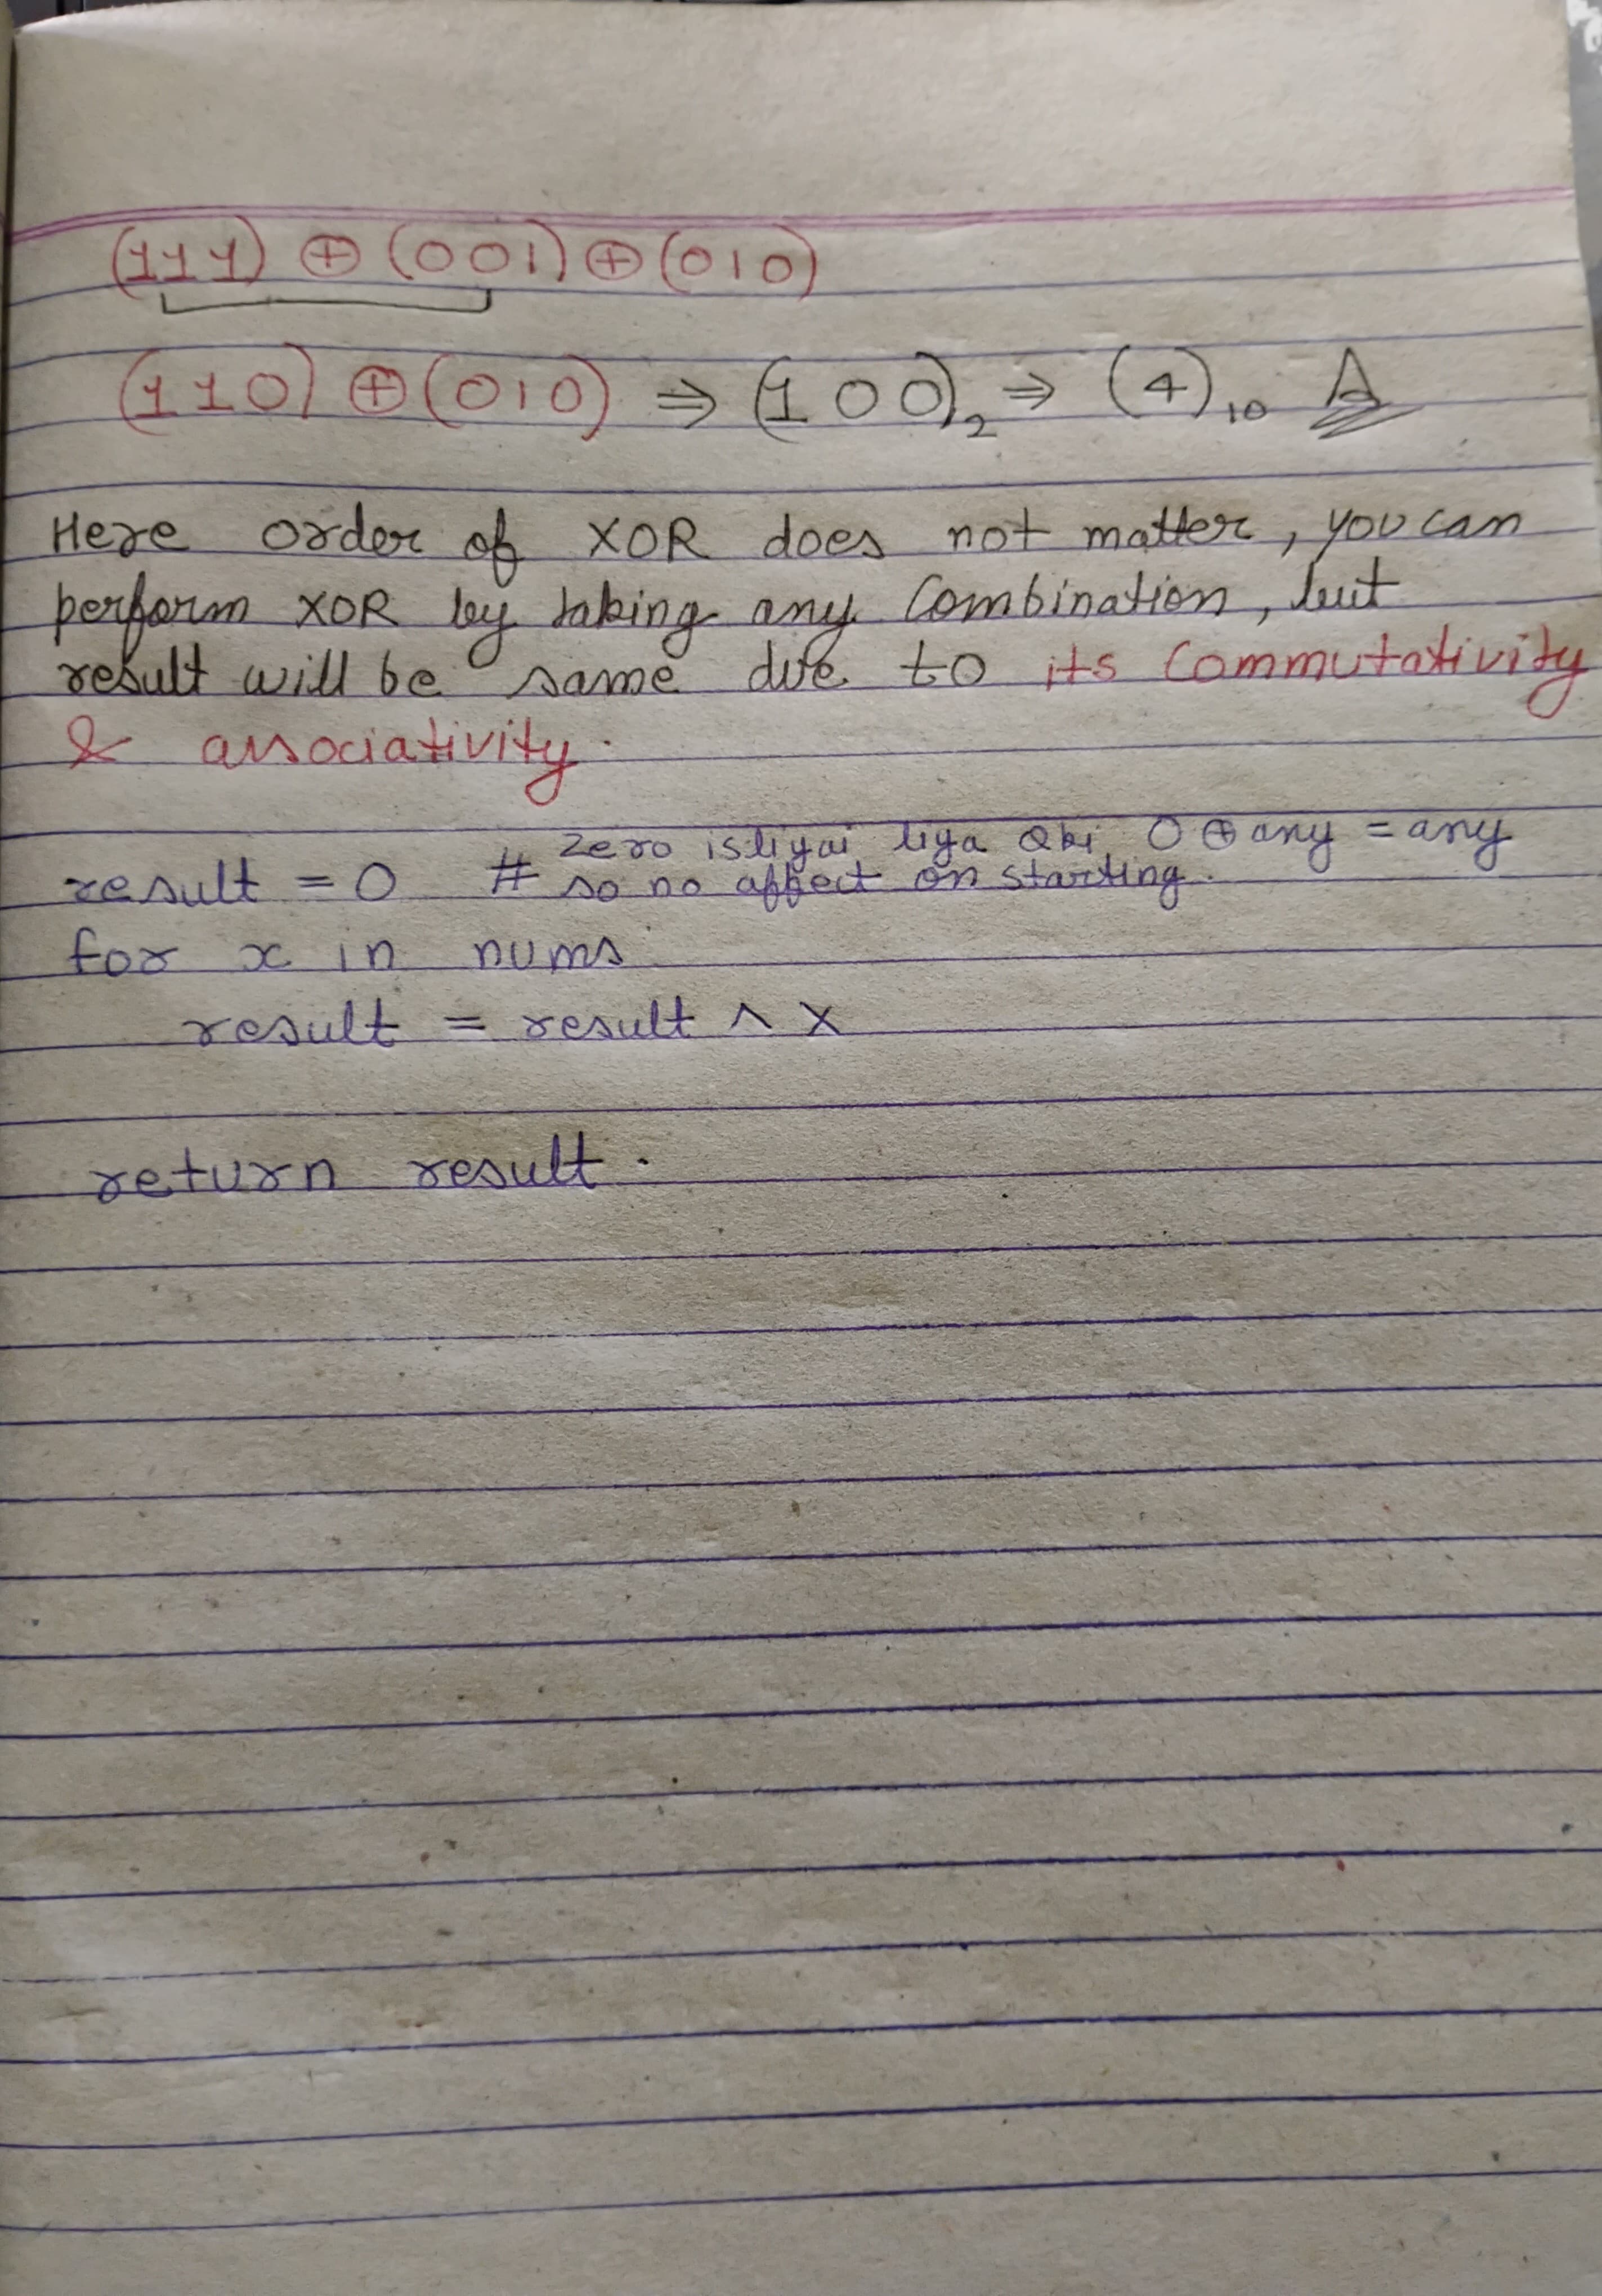 (111) ⊕ (001) ⊕ (010)
(110) ⊕ (010) ⇒ (100)₂ ⇒ (4)₁₀ A
Here order of XOR does not matter, you can
perform XOR by taking any combination, but
result will be same due to its commutativity
& associativity.
zero isliyai liya Qki 0 ⊕ any = any
result = 0 # so no affect on starting.
for x in nums
result = result ^ x
return result.